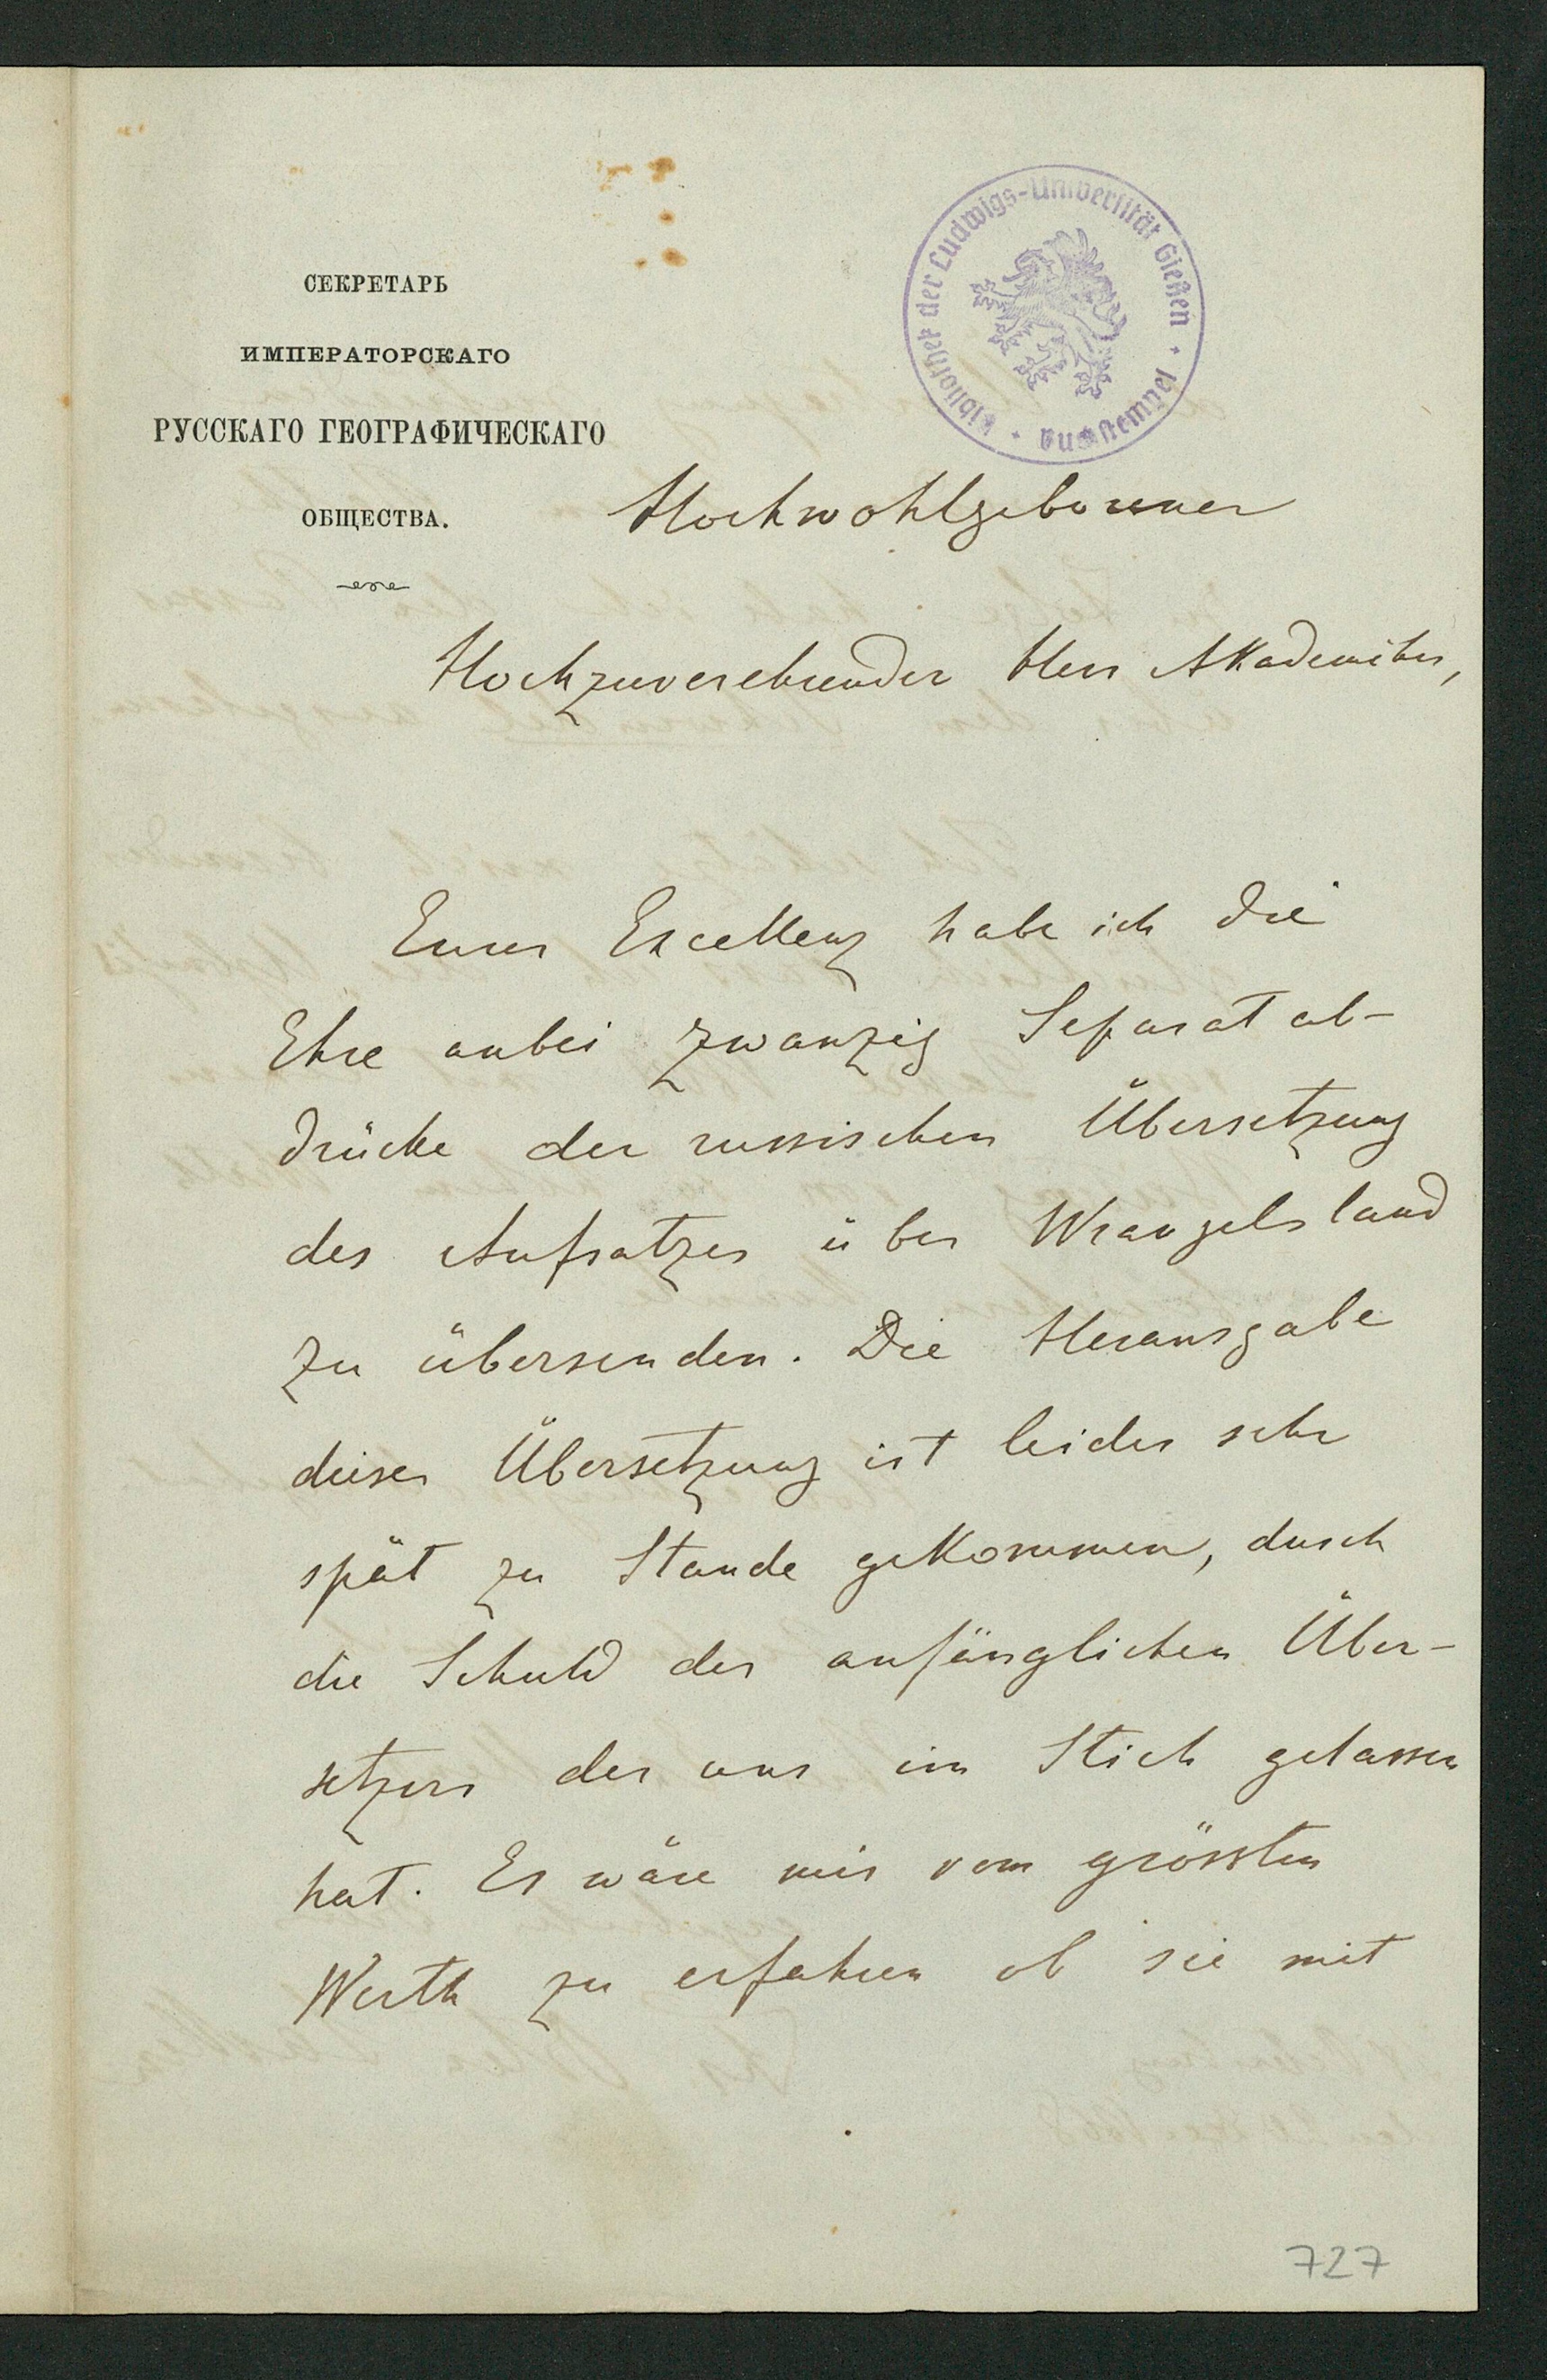 СЕКРЕТАРЬ
ИМПЕРАТОРСКАГО
РУССКАГО ГЕОГРАФИЧЕСКАГО
ОБЩЕСТВА.
Bibliothek der Ludwigs-Universität Gießen · Buchstempel ·
Hochwohlgeborener
Hochzuverehrender Herr Akademiker,
Eurer Excellenz habe ich die
Ehre anbei zwanzig Separatab-
drücke der russischen Übersetzung
des Aufsatzes über Wrangelsland
zu übersenden. Die Herausgabe
dieser Übersetzung ist leider sehr
spät zu Stande gekommen, durch
die Schuld des anfänglichen Über-
setzers der uns im Stich gelassen
hat. Es wäre mir vom grössten
Werth zu erfahren ob sie mit
727